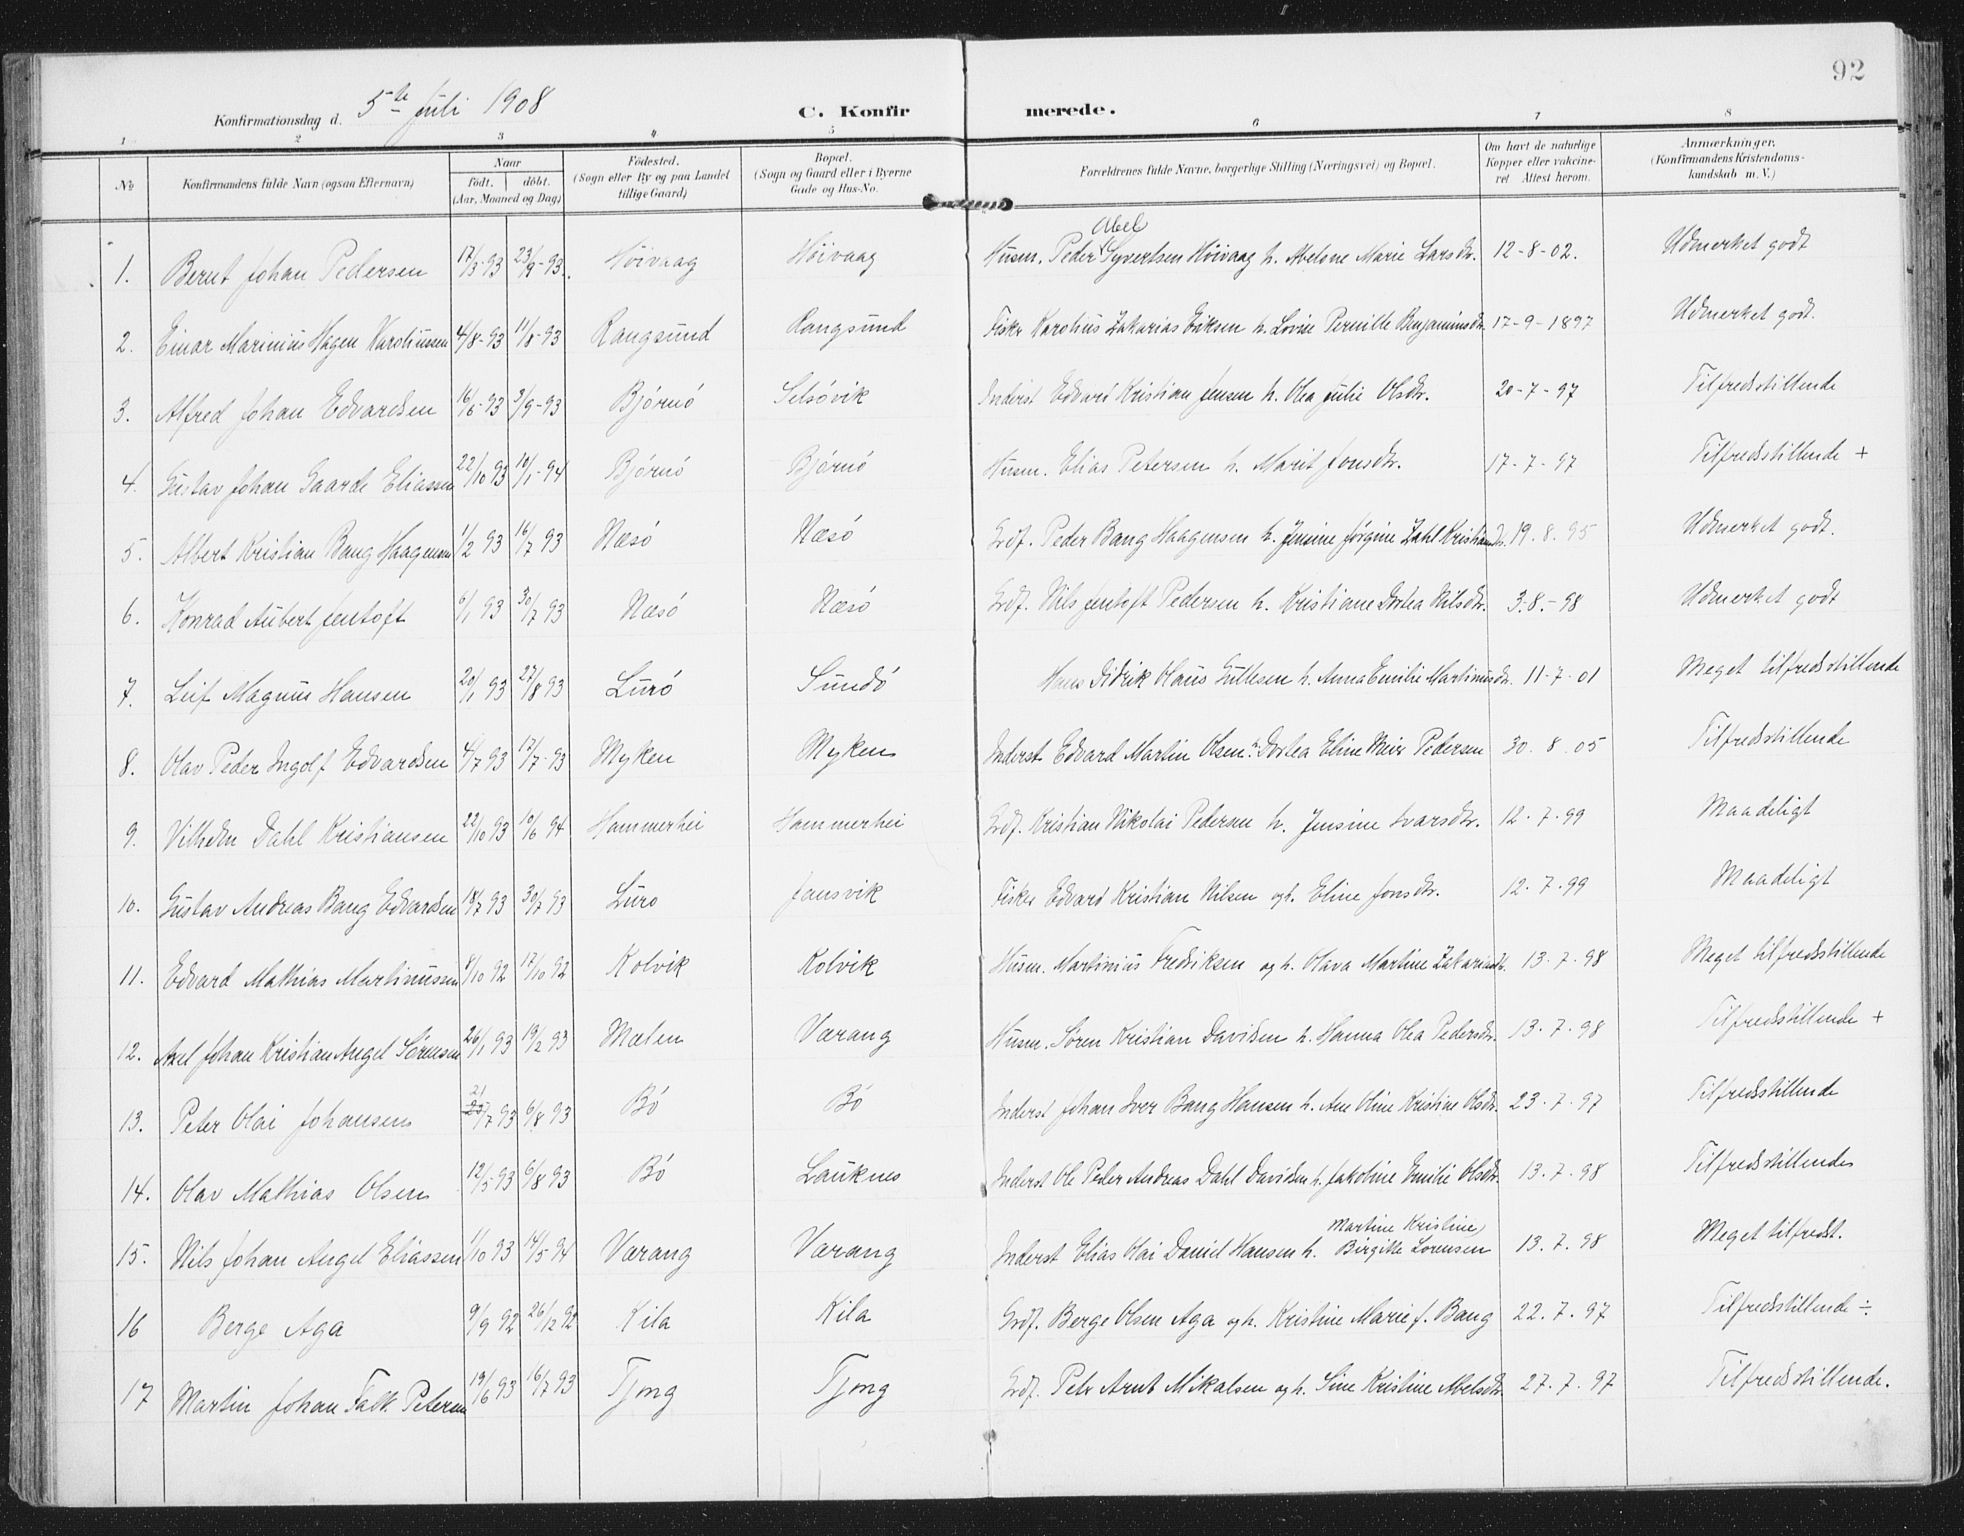 92
Konfirmationsdag d. 5te Juli 1908 C. Konfirmerede.
1 2 3 4 5 6 7 8
No Konfirmandens fulde Navn (ogsaa Efternavn) Naar født. døbt. (Aar, Maaned og Dag) Fødested. (Sogn eller By og paa Landet tillige Gaard) Bopæl. (Sogn og Gaard eller i Byerne Gade og Hus-No. Forældrenes fulde Navne, borgerlige Stilling (Næringsvei) og Bopæl. Om havt de naturlige Kopper eller vakcineret Attest herom. Anmærkninger. (Konfirmandens Kristendomskundskab m. V.)
1. Bernt Johan Pedersen 17/3-93 23/9-93. Høivaag Høivaag Husm. Peder Abel Syvertsen Høivaag h. Abelone Marie Larsdtr. 12-8-02. Udmerket godt
2. Einar Marinius Hagen Karoliussen 4/8-93 11/8-93 Rangsund Rangsund Fisker Karolius Zakarias Eriksen h. Lovise Pernille Benjaminsdtr. 17-9-1897 Udmerket godt.
3. Alfred Johan Edvardsen 16/6-93 3/9-93 Bjørnø Selsøvik Inderst Edvard Kristian Jensen h. Olea Julie Olsdtr. 20-7-97 Tilfredsstillende
4. Gustav Johan Gaarde Eliassen 22/10 93 10/1-94 Bjørnø Bjørnø Husm. Elias Petersen h. Marit Jonsdtr. 17-7-97 Tilfredsstillende +
5. Albert Kristian Bang Haagensen 1/2 93 16/7 93 Næsø Næsø Grdf. Peder Bang Haagensen h. Jensine Jørgine Zahl Kristiansdtr. 19.8.95 Udmerket godt.
6. Konrad Aubert Jentoft 6/1 93 30/7 93 Næsø Næsø Grdf. Nils Jentoft Pedersen h. Kristiane Dortea Nilsdtr. 3.-8.-98 Udmerket godt
7. Leif Magnus Hansen 20/1 93 27/8 93 Lurø Sundø Hans Didrik Olaus Gullesen h. Anna Emilie Martinusdtr. 11-7-01 Meget tilfredsstillende
8. Olav Peder Ingolf Edvardsen 4/7 93 17/7-93 Myken Myken Inderst Edvard Martin Olsen h. Dortea Eline Meier Pedersen 30.8.05 Tilfredsstillende
9. Vilhelm Dahl Kristiansen 22/10 93 10/6 94 Hammerhei Hammerhei Grdf. Kristian Nikolai Pedersen h. Jensine Ivarsdtr. 12.7.99 Maadeligt
10. Gustav Andreas Bang Edvardsen 18/7 93 30/7 93 Luro Jansvik Fisker Edvard Kristian Nilsen og h. Eline Jonsdtr. 12.7.99 Maadeligt
11. Edvard Mathias Martinussen 8/10 92 17/10 92 Kolvik Kolvik Husm. Martinius Fredriksen og h. Olava Martine Zakariasdtr. 13.7.98 Meget tilfredsstillende
12. Axel Johan Kristian Angel Sørensen 26/1 93 19/2 93 Mælen Værang Husm. Søren Kristian Davidsen h. Hanna Olea Pedersdtr. 13.7.98 Tilfredsstillende +
13. Peter Olai Johansen 21 20/7 93 6/8 93 Bø Bø Inderst Johan Iver Bang Hansen h. Ane Oline Kristine Olsdtr. 23.7.97 Tilfredsstillende
14. Olav Mathias Olsen 12/5 93 6/8 93 Bø Lauknes Inderst Ole Peder Andreas Dahl Davidsen h. Jakobine Emilie Olsdtr. 13.7.98 Tilfredsstillende
15. Nils Johan Angel Eliassen 1/10 93 14/5 94 Værang Værang Inderst Elias Olai Daniel Hansen h. Martine Kristine Birgitte Lorensen 13.7.98 Meget tilfredst.
16 Berge Aga 9/9 92 26/12 92 Kila Kila Grdf. Berge Olsen Aga og h. Kristine Marie f. Bang 22.7.97 Tilfredsstillende ÷
17 Martin Johan Falk Petersen 19/6 93 16/7 93 Tjong Tjong Grdf. Petr Arnt Mikalsen og h. Sine Kristine Abelsdtr. 27.7.97 Tilfredsstillende.